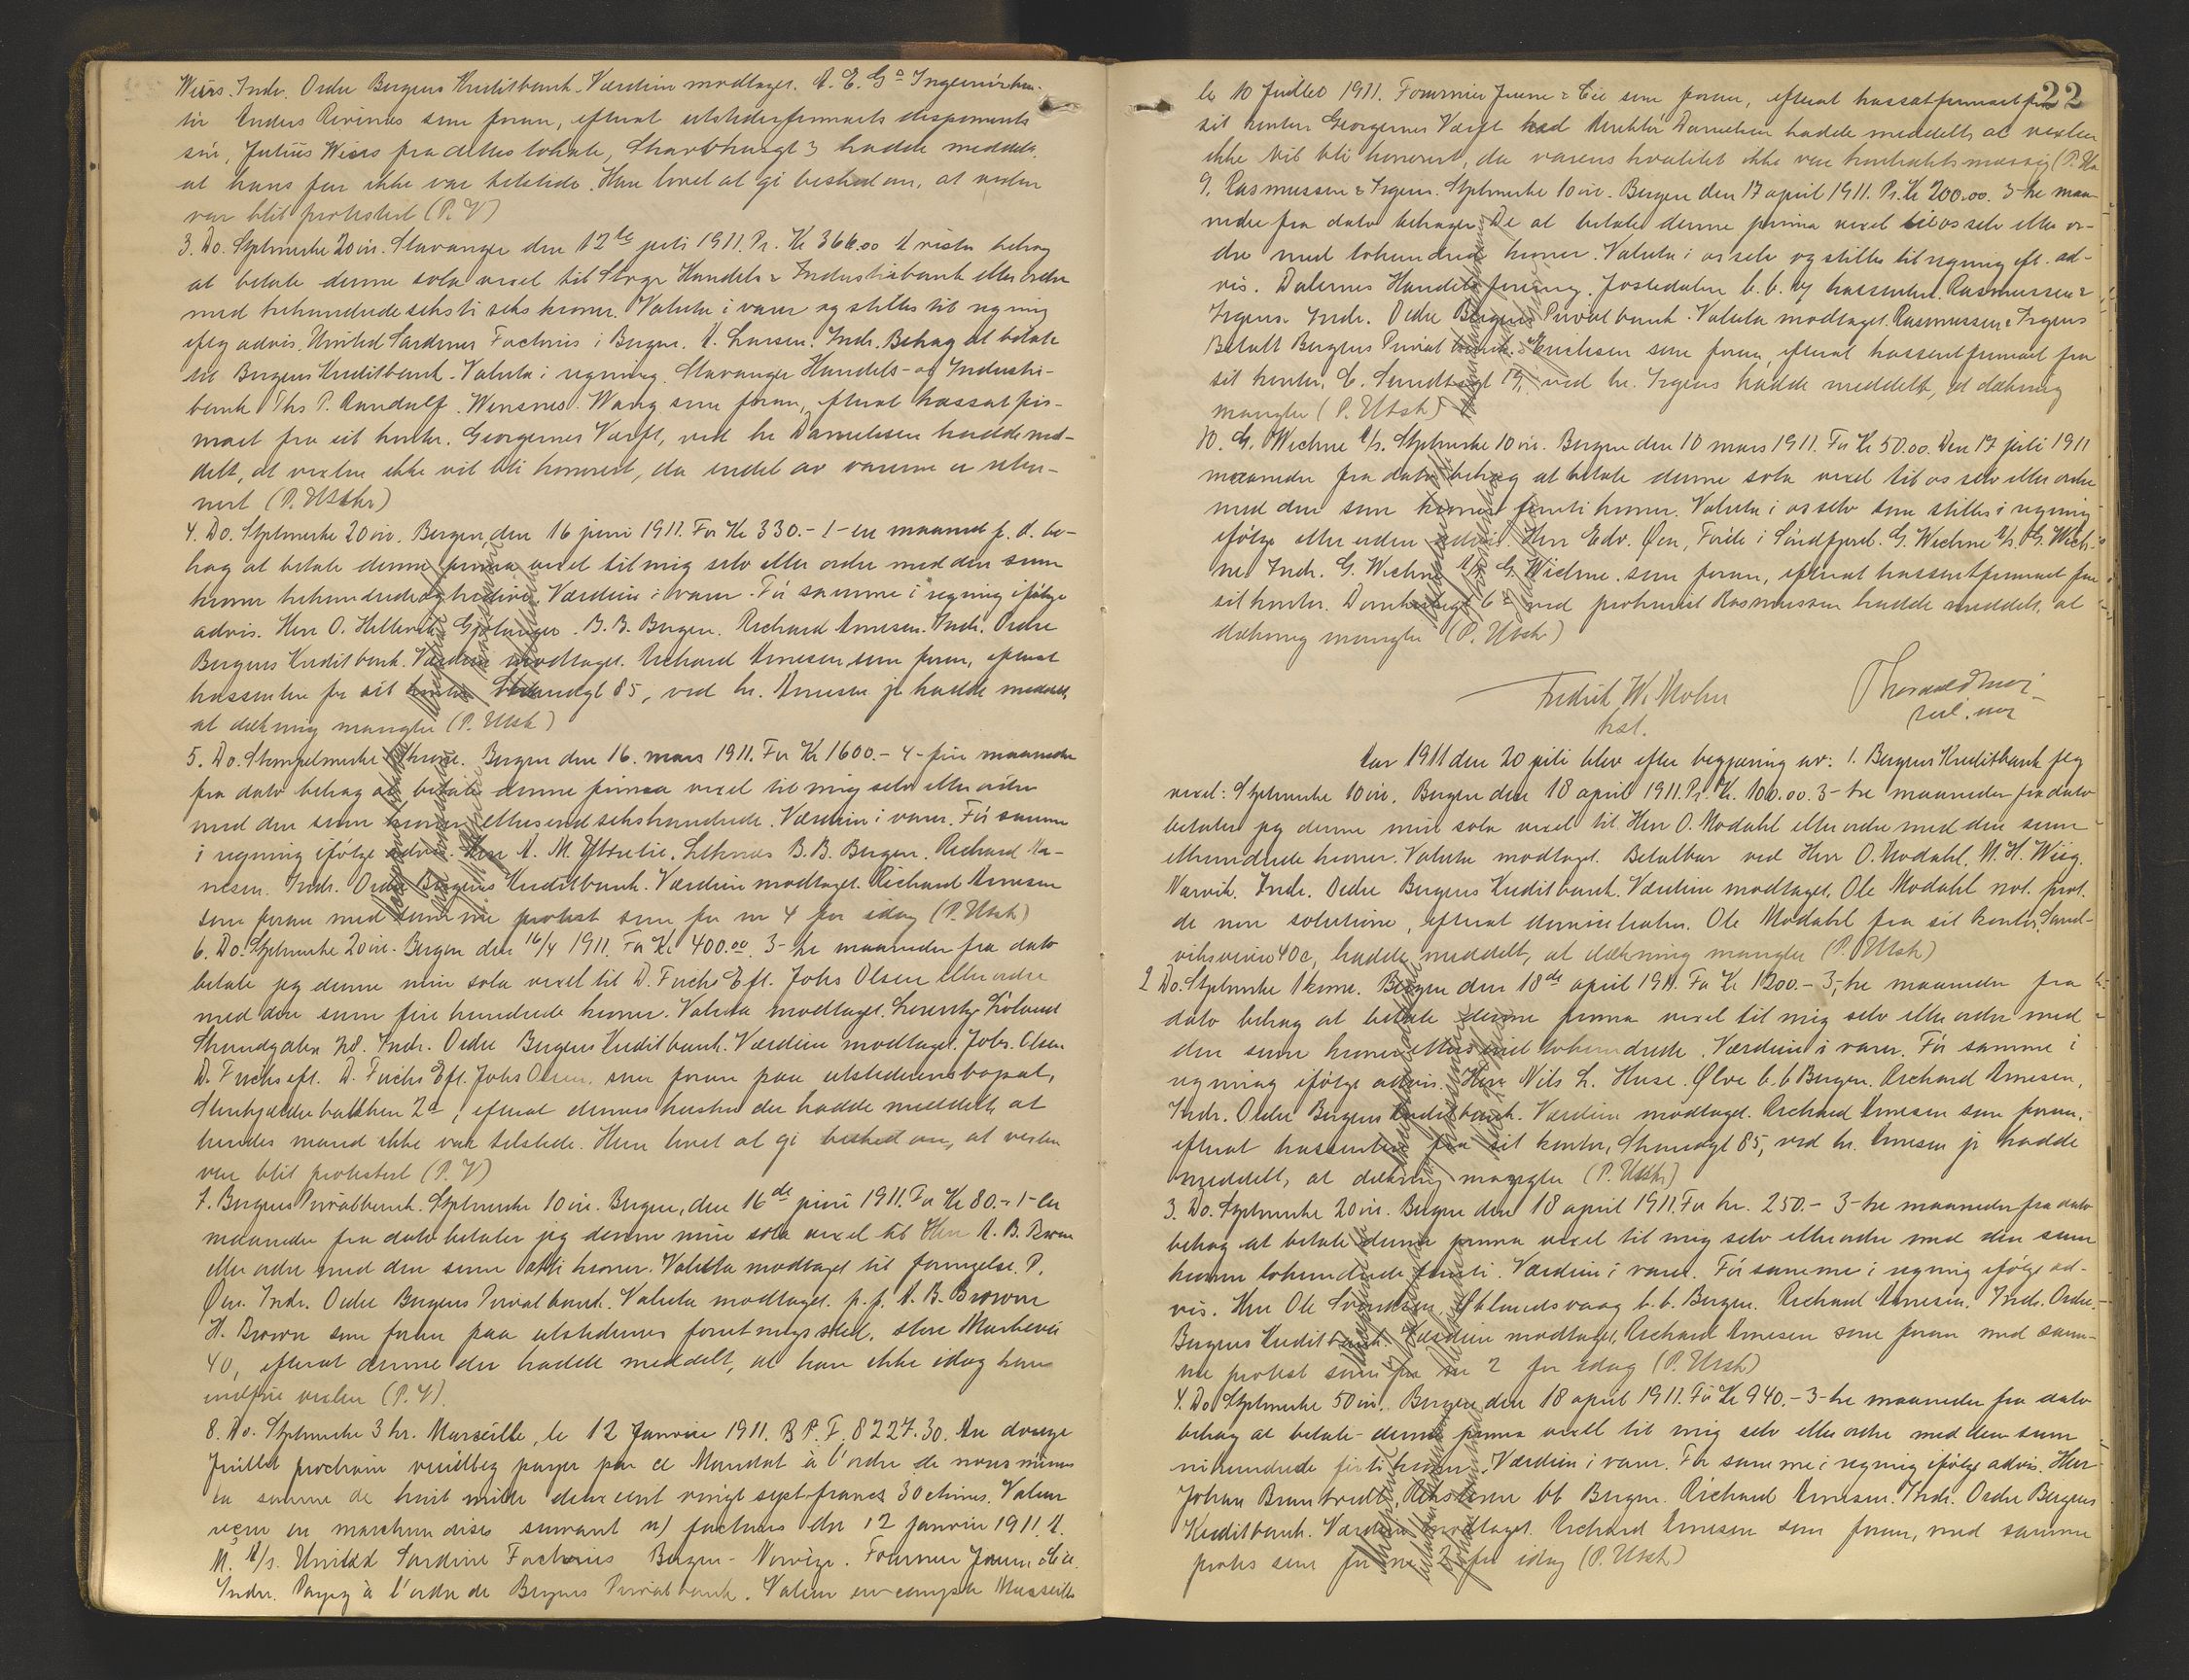 Wiers. Indr. Ordre Bergens Kreditbank. Værdien modtaget. A. E. G° Ingeniørkon-
tor Anders Rivenes som foran, efterat utstederfirmaets disponents
søn, Julius Wiers fra dettes lokale, Skarvhusgt 3 hadde meddelt,
at hans far ikke var tilstede. Han lovet at gi besked om, at vexlen
var blit protestert (P.V)
3. Do. Stplmerke 20 øre. Stavanger den 12te juli 1911. Pr. Kr 366.00 A vista behag
at betale denne sola vexel til Stvgr Handels & Industribank eller ordre
med trehundredeseksti seks kroner. Valuta i varer og stilles til regning
iflg advis. United Sardines Factories i Bergen. A. Larsen. Indr. Behag at betale
til Bergens Kreditbank. Valuta i regning. Stavanger Handels- og Industri-
bank Ths P. Randulf. Wensnes. Wang som foran, efterat trassatfir-
maet fra sit kontor. Georgernes Værft, ved hr Danielsen hadde med-
delt, at vexlen ikke vil bli honorert, da endel av varerne er retur-
nert (P. Utstr)
4. Do. Stplmerke 20 øre. Bergen, den 16 juni 1911. For Kr 330.- 1- en maaned f. d. be-
hag at betale denne prima vexel til mig selv eller ordre med den sum
kroner trehundredeogtredive Værdien i varer. Før samme i regning ifølge
advis. Herr O. Hillervik. Gjelanger. B. B. Bergen. Richard Arnesen. Indr. Ordre
Bergens Kreditbank. Værdien modtaget. Richard Arnesen som foran, efterat
trassenten fra sit kontor Strandgt 85, ved hr. Arnesen jr hadde meddelt,
at dækning mangler (P. Utst)
5. Do. Stempelmerke 1 krone. Bergen den 16. mars 1911. For Kr 1600.- 4- fire maaneder
fra dato behag at betale denne prima vexel til mig selv eller ordre
med den sum kroner ettusendsekshundrede. Værdien i varer. Før samme
i regning ifølge advis. Herr A. M. Ytrelie. Leknes B. B. Bergen. Richard Ar-
nesen. Indr. Ordre Bergens Kreditbank. Værdien modtaget. Richard Arnesen
som foran med samme protest som for nr 4 for idag (P. Utst)
6. Do. Stplmerke 20 øre. Bergen den 16/4 1911. For Kr 400.00. 3- tre maaneder fra dato
betale jeg denne min sola vexel til D. Fuchs Eft. Johs Olsen eller ordre
med den sum fire hundrede kroner. Valuta modtaget. Lorentz Loland
Strandgaten 78. Indr. Ordre Bergens Kreditbank. Værdien modtaget. Johs. Olsen
D. Fuchs eft. D. Fuchs Eft. Johs Olsen som foran paa utstederens bopæl,
Stenkjelderbakken 2a, efterat dennes hustru der hadde meddelt, at
hendes mand ikke var tilstede. Hun lovet at gi besked om, at vexlen
var blit protestert (P. V)
7. Bergens Privatbank. Stplmerke 10 øre. Bergen, den 16de juni 1911. For Kr 80.- 1- en
maaneder fra dato betaler jeg denne min sola vexel til Herr A. B. Brown
eller ordre med den sum otti kroner. Valuta modtaget til fornyelse. P.
Øen. Indr. Ordre Bergens Privatbank. Valuta modtaget. p. p. A. B. Brown
H. Brown som foran paa utstederens forretningssted, store Markevei
40, efterat denne der hadde meddelt, at han ikke idag kan
indfri vexlen (P. V).
8. Do. Stplmerke 3 kr. Marseille, le 12 Janvier 1911. B P. F. 8227.30. Au douze
Juillet prochain veuillez payer par ce Mandat à l'ordre de nous mêmes
la somme de huit mille deux cent vingt sept francs 30 ctimes. Valeur
reçue en marchandises suivant n/ factures du 12 janvier 1911. A.
M. A/s. United Sardine Factories Bergen - Norvège. Fournier Jeune & Cie.
Indr. Payez à l'ordre de Bergens Privatbank. Valeur en compte Marseille
22
le 10 Juillet 1911. Fournier Jeune & Cie som foran, efterat trassatfirmaet fra
sit kontor Georgernes Værft ved direktør Danielsen hadde meddelt, at vexlen
ikke vil bli honorert, da varens kvalitet ikke var kontraktsmæssig (P. Utst
9. Rasmussen & Irgens. Stplmerke 10 øre. Bergen den 17 april 1911. Pr. Kr 200.00. 3 tre maa-
neder fra dato behager De at betale denne prima vexel til os selv eller or-
dre med tohundrede kroner. Valuta i os selv og stilles til regning eft. ad-
vis. Dalernes Handelsforening. Jostedalen b. b. Af trassentent. Rasmussen &
Irgens. Indr. Ordre Bergens Privatbank. Valuta modtaget. Rasmussen & Irgens
Betalt Bergens Privatbank. Erichsen som foran, efterat trassentfirmaet fra
sit kontor, C. Sundtsgt 19, ved hr. Irgens hadde meddelt, at dækning
mangler (P. Utst)
10. G. Wichne A/s. Stplmerke 10 øre. Bergen den 10 mars 1911. For Kr 50.00. Den 17 juli 1911
maaneder fra dato behag at betale denne sola vexel til os selv eller ordre
med den sum kroner femti kroner. Valuta i os selv som stilles i regning
ifølge eller uden advis. Herr Edv. Øen, Førde i Søndfjord. G. Wichne A/s. G. Wich-
ne. Indr. G. Wichne A/s G. Wichne. som foran, efterat trassentfirmaet fra
sit kontor. Domkirkegt 6 ved prokurist Rasmussen hadde meddelt, at
dækning mangler (P. Utst)
Fredrik W. Mohn
kst.
Aar 1911 den 20 juli blev efter begjæring av: 1. Bergens Kreditbank flg
vexel: Stplmerke 10 øre. Bergen den 18 april 1911. Pr. Kr. 100.00. 3- tre maaneder fra dato
betaler jeg denne min sola vexel til Herr O. Modahl eller ordre med den sum
ethundrede kroner. Valuta modtaget. Betalbar ved Herr O. Modahl. M. H. Wiig.
Narvik. Indr. Ordre Bergens Kreditbank. Værdien modtaget. Ole Modahl not. prot.
de non solutione, efterat domiciliaten. Ole Modahl fra sit kontor, Sand-
viksveien 40c, hadde meddelt, at dækning mangler (P. Utst)
2 Do. Stplmerke 1 krone. Bergen den 18de april 1911. For Kr 1200.- 3- tre maaneder fra
dato behag at betale denne prima vexel til mig selv eller ordre med
den sum kroner ettusind tohundrede. Værdien i varer. Før samme i
regning ifølge advis. Herr Nils L. Huse. Ølve b. b Bergen. Richard Arnesen,
Indr. Ordre Bergens Kreditbank. Værdien modtaget. Richard Arnesen som foran,
efterat trassenten fra sit kontor, Strandgt 85, ved hr. Arnesen jr hadde
meddelt, at dækning mangler (P. Utst)
3. Do. Stplmerke 20 øre. Bergen den 18 april 1911. For kr. 250.- 3- tre maaneder fra dato
behag at betale denne prima vexel til mig selv eller ordre med den sum
kroner tohundrede femti. Værdien i varer. Før samme i regning ifølge ad-
vis. Herr Ole Svendsen, Eklundsvaag b. b. Bergen. Richard Arnesen. Indr. Ordre.
Bergens Kreditbank. Værdien modtaget. Richard Arnesen som foran med sam-
me protest som for nr 2 for idag (P. Utst)
4. Do Stplmerke 50 øre. Bergen den 18 april 1911. For Kr 940.- 3- tre maaneder fra dato
behag at betale denne prima vexel til mig selv eller ordre med den sum
nihundrede firti kroner. Værdien i varer. Før samme i regning ifølge advis. Herr
Johan Bruntvedt, bb Bergen. Richard Arnesen. Indr. Ordre Bergens
Kreditbank. Værdien modtaget. Richard Arnesen som foran, med samme
protest som for nr 2 for idag (P. Utst)